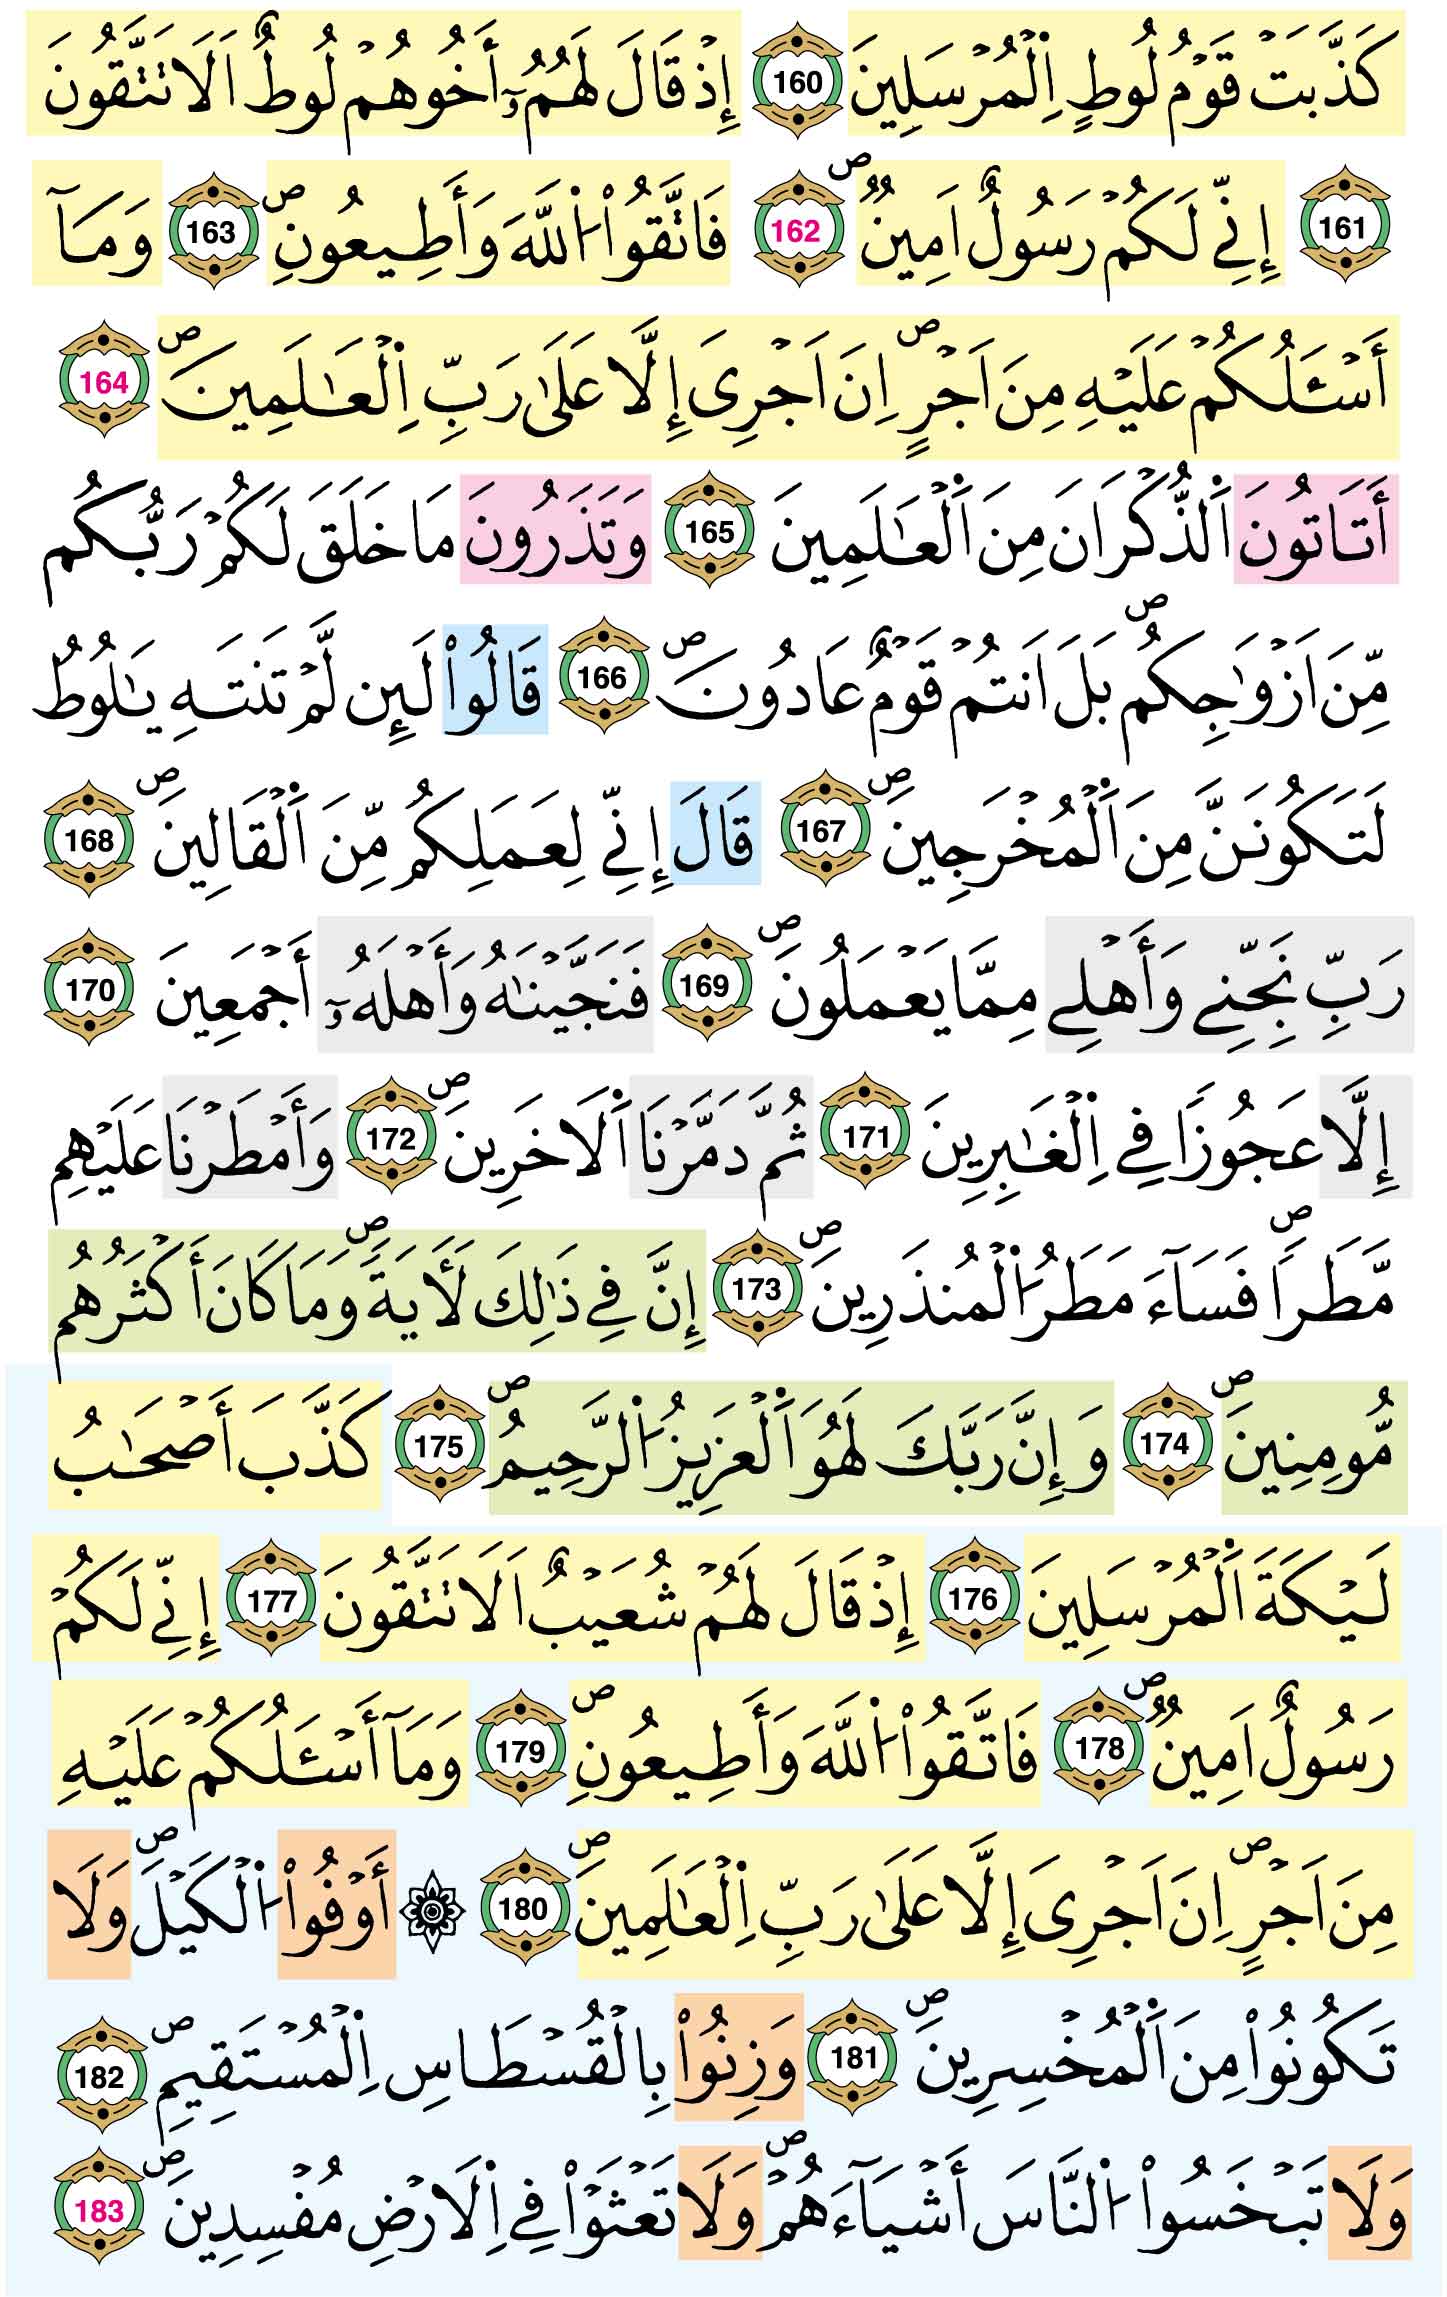 كَذَّبَتْ قَوْمُ لُوطٍ اِ۬لْمُرْسَلِينَ 160 إِذْ قَالَ لَهُمُۥٓ أَخُوهُمْ لُوطٌ اَلَا تَتَّقُونَ
161 إِنِّے لَكُمْ رَسُولٌ اَمِينٞ ۖ 162 فَاتَّقُواْ اُ۬للَّهَ وَأَطِيعُونِ ۖ 163 وَمَآ
أَسْـَٔلُكُمْ عَلَيْهِ مِنَ اَجْرٍ ۖ اِنَ اَجْرِىَ إِلَّا عَلَىٰ رَبِّ اِ۬لْعَٰلَمِينَ ۖ 164
أَتَاتُونَ اَ۬لذُّكْرَانَ مِنَ اَ۬لْعَٰلَمِينَ 165 وَتَذَرُونَ مَا خَلَقَ لَكُمْ رَبُّكُم
مِّنَ اَزْوَٰجِكُم ۖ بَلَ اَنتُمْ قَوْمٌ عَادُونَ ۖ 166 قَالُواْ لَئِن لَّمْ تَنتَهِ يَٰلُوطُ
لَتَكُونَنَّ مِنَ اَ۬لْمُخْرَجِينَ ۖ 167 قَالَ إِنِّے لِعَمَلِكُم مِّنَ اَ۬لْقَالِينَ ۖ 168
رَبِّ نَجِّنِے وَأَهْلِے مِمَّا يَعْمَلُونَ ۖ 169 فَنَجَّيْنَٰهُ وَأَهْلَهُۥٓ أَجْمَعِينَ 170
إِلَّا عَجُوزاٗ فِے اِ۬لْغَٰبِرِينَ 171 ثُمَّ دَمَّرْنَا اَ۬لَاخَرِينَ ۖ 172 وَأَمْطَرْنَا عَلَيْهِم
مَّطَراٗ ۖ فَسَآءَ مَطَرُ اُ۬لْمُنذَرِينَ ۖ 173 إِنَّ فِے ذَٰلِكَ لَأٓيَةٗ ۖ وَمَا كَانَ أَكْثَرُهُم
مُّومِنِينَ ۖ 174 وَإِنَّ رَبَّكَ لَهُوَ اَ۬لْعَزِيزُ اُ۬لرَّحِيمُ ۖ 175 كَذَّبَ أَصْحَٰبُ
لَيْكَةَ اَ۬لْمُرْسَلِينَ 176 إِذْ قَالَ لَهُمْ شُعَيْبٌ اَلَا تَتَّقُونَ 177 إِنِّے لَكُمْ
رَسُولٌ اَمِينٞ ۖ 178 فَاتَّقُواْ اُ۬للَّهَ وَأَطِيعُونِ ۖ 179 وَمَآ أَسْـَٔلُكُمْ عَلَيْهِ
مِنَ اَجْرٍ ۖ اِنَ اَجْرِىَ إِلَّا عَلَىٰ رَبِّ اِ۬لْعَٰلَمِينَ ۖ 180 ۞ أَوْفُواْ اُ۬لْكَيْلَ ۖ وَلَا
تَكُونُواْ مِنَ اَ۬لْمُخْسِرِينَ ۖ 181 وَزِنُواْ بِالْقُسْطَاسِ اِ۬لْمُسْتَقِيمِ ۖ 182
وَلَا تَبْخَسُواْ اُ۬لنَّاسَ أَشْيَآءَهُمْ ۖ وَلَا تَعْثَوْاْ فِے اِ۬لَارْضِ مُفْسِدِينَ ۖ 183